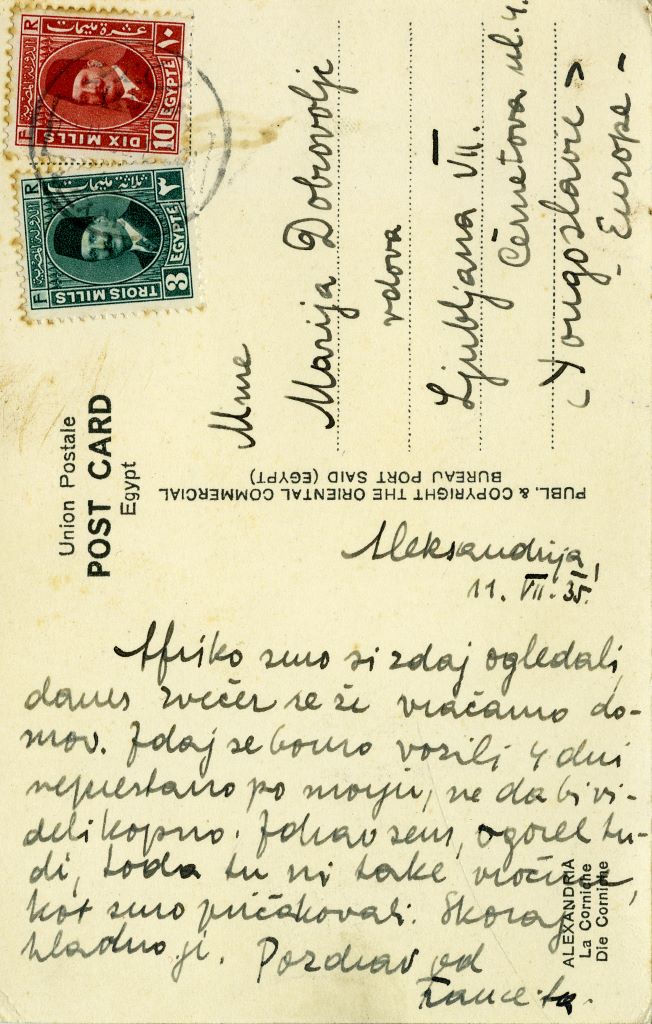 عشرة مليمات
F R
الدولة المصرية
EGYPTE
١٠
10
DIX MILLS
ثلاثة مليمات
F R
الدولة المصرية
EGYPTE
٣
3
TROIS MILLS
Union Postale
POST CARD
Egypt
Mme
Marija Dobrovoljc
vdova
Ljubljana VII.
Černetova ul. 4.
(Yougoslavie)
- Europe -
PUBL. & COPYRIGHT THE ORIENTAL COMMERCIAL
BUREAU PORT SAID (EGYPT)
Aleksandrija,
11. VII. 35.
Afriko smo si zdaj ogledali,
danes zvečer se že vračamo do-
mov. Zdaj se bomo vozili 4 dni
neprestano po morju, ne da bi vi-
deli kopno. Zdrav sem, ogorel tu-
di, toda tu ni take vročine,
kot smo pričakovali. Skoraj
hladno ji. Pozdrav od
Franceta.
ALEXANDRIA
La Corniche
Die Corniche